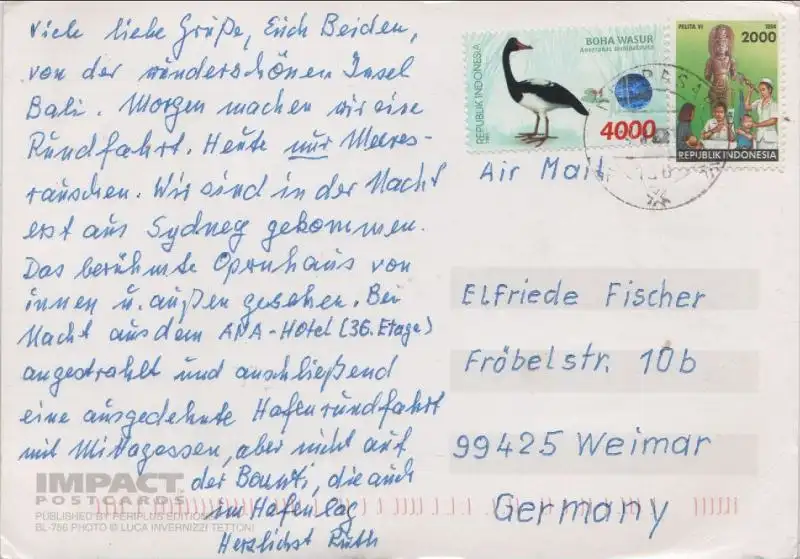 Viele liebe Grüße, Euch Beiden,
von der wunderschönen Insel
Bali. Morgen machen wir eine
Rundfahrt. Heute nur Meeres-
rauschen. Wir sind in der Nacht
erst aus Sydney gekommen.
Das berühmte Opernhaus von
innen u. außen gesehen. Bei
Nacht aus dem ANA-Hotel (36. Etage)
angestrahlt und anschließend
eine ausgedehnte Hafenrundfahrt
mit Mittagessen, aber nicht auf
der Bounti, die auch
im Hafen lag
Herzlichst Ruth
IMPACT
POSTCARDS
PUBLISHED BY PERIPLUS EDITIONS
BL-786 PHOTO © LUCA INVERNIZZI TETTONI
REPUBLIK INDONESIA
BOHA WASUR
Anseranas semipalmata
4000
PELITA VI
1994
2000
REPUBLIK INDONESIA
Air Mail
Elfriede Fischer
Fröbelstr. 10b
99425 Weimar
Germany